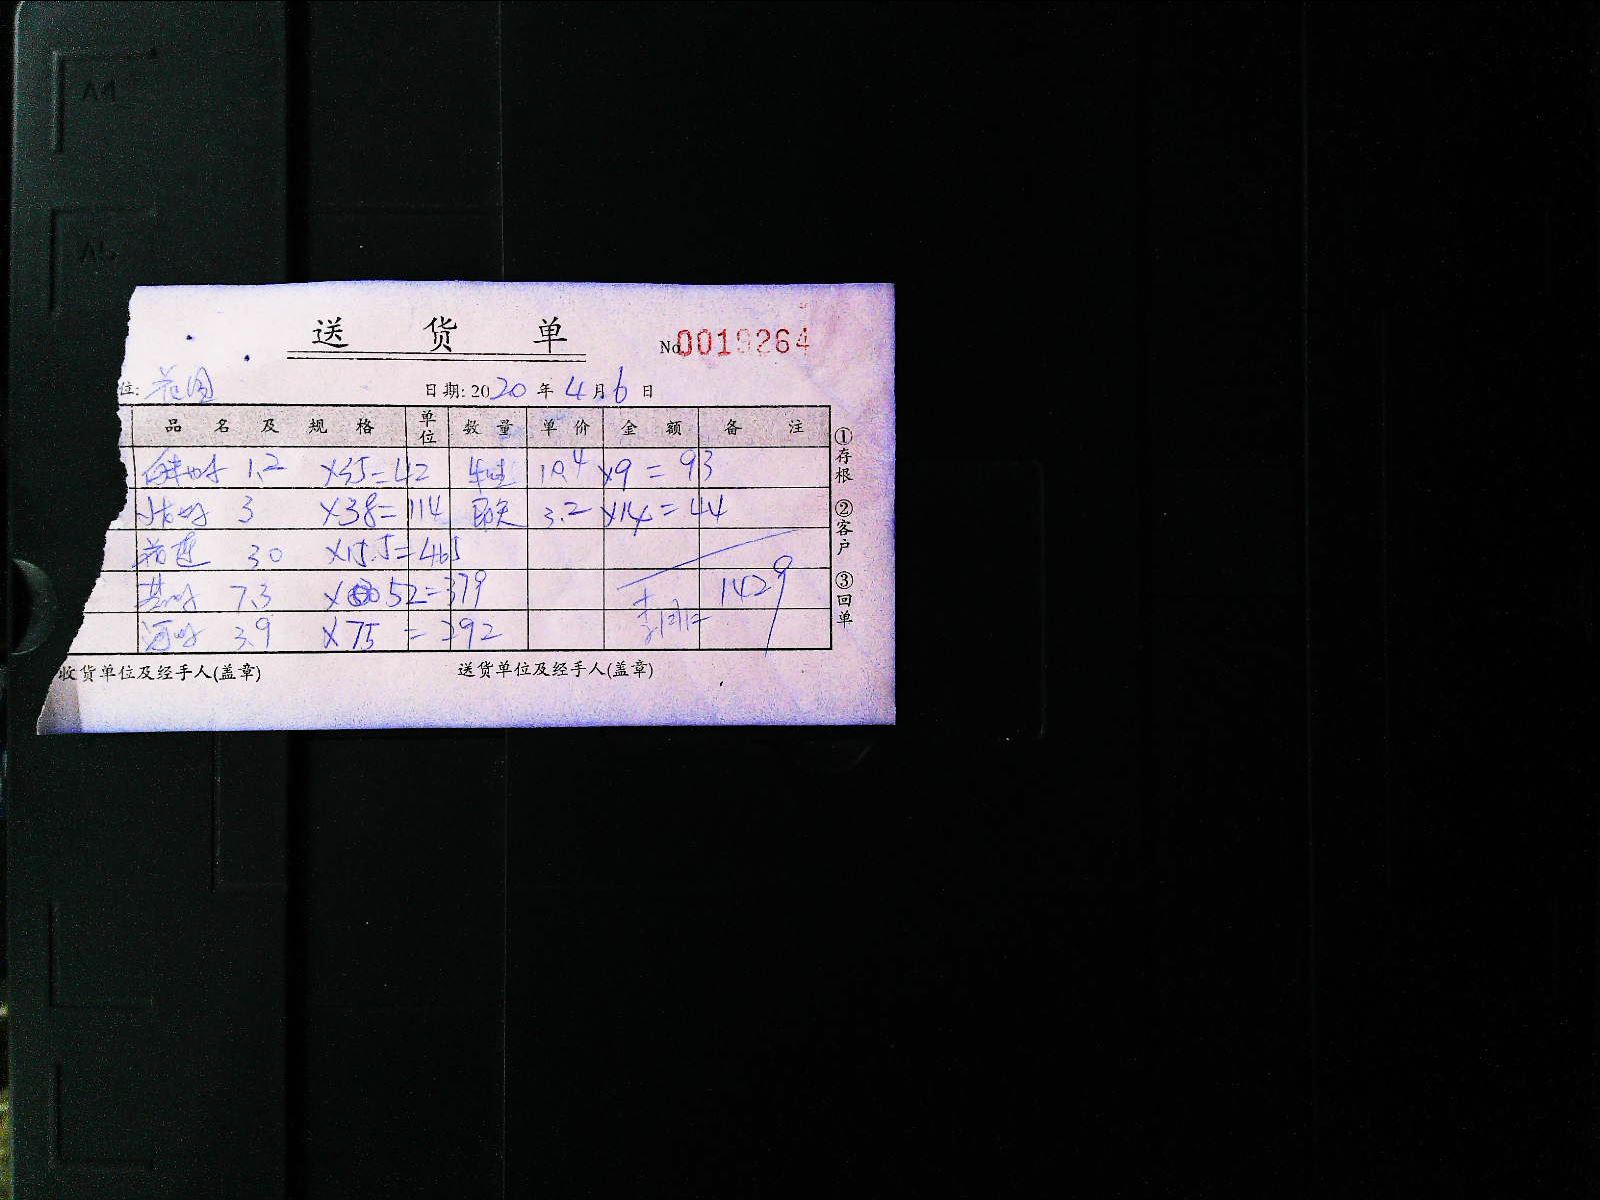 A4
A5
送 货 单
No 0019264
位: 花园 日期: 2020 年 4 月 6 日
品 名 及 规 格 单位 数 量 单 价 金 额 备 注
1.2 ×35=42 10.4 ×9 = 93
3 ×38= 114 3.2 ×14 = 44
30 ×15.5=465
7.3 × 52=379
3.9 ×75 = 292
1429
①存根 ②客户 ③回单
收货单位及经手人(盖章) 送货单位及经手人(盖章)